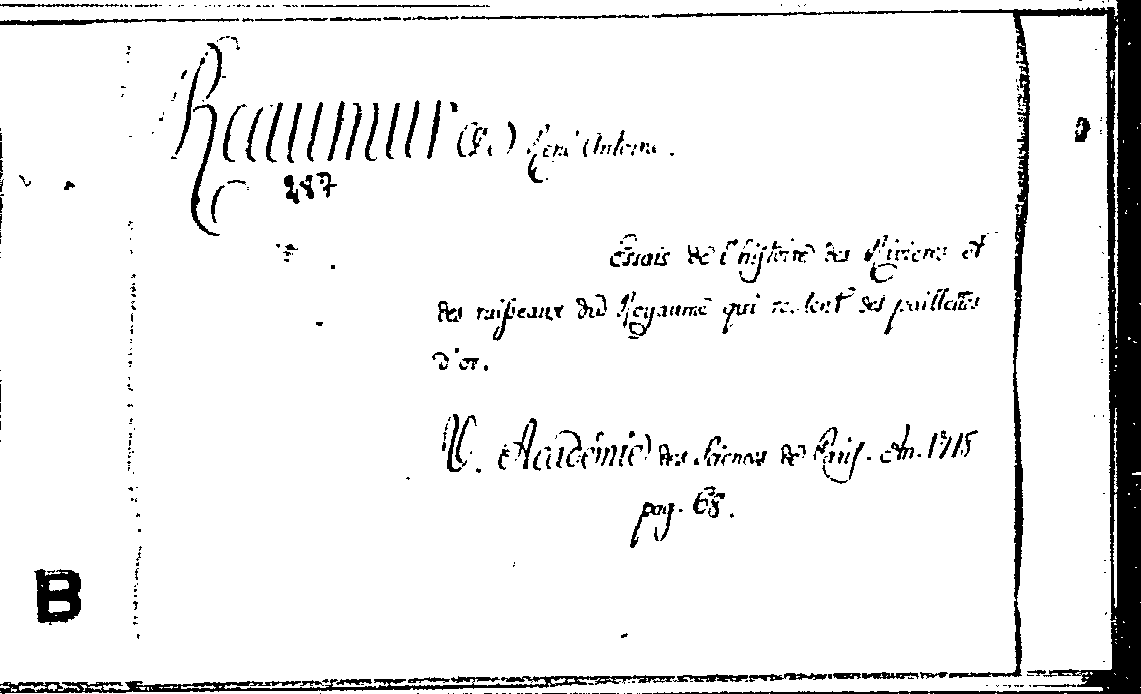 Reaumur (de) René Antoine.
287
Essais de l'histoire des Rivieres et
des ruisseaux du Royaume qui roulent des paillettes
d'or.
V. Académie des Sciences de Paris. An. 1715
pag. 68.
B